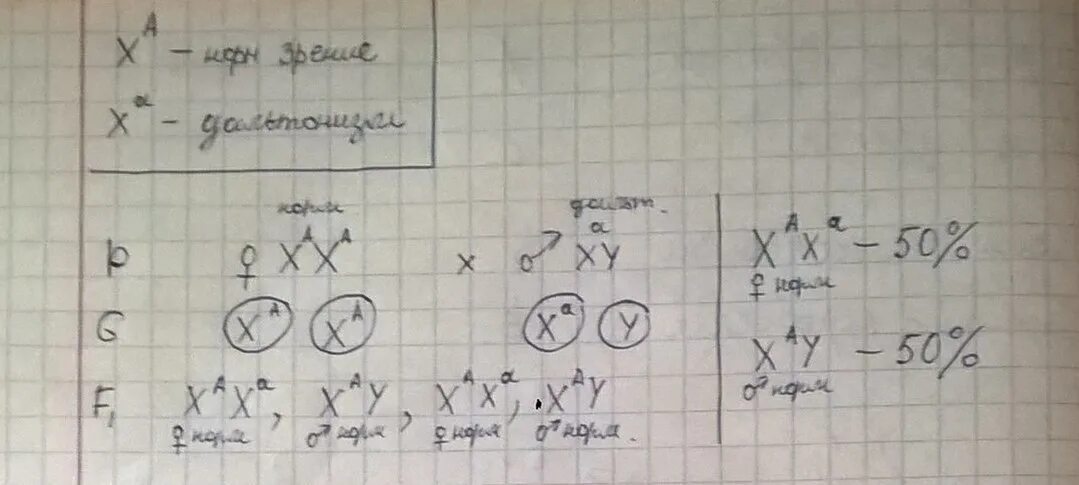 X^A – норм зрение
X^a – дальтонизм
норм дальт.
P ♀ X^A X^A x ♂ X^a Y
G X^A X^A X^a Y
F₁ X^A X^a, X^A Y, X^A X^a, X^A Y
♀ норм ♂ норм ♀ норм ♂ норм.
X^A X^a – 50%
♀ норм
X^A Y – 50%
♂ норм